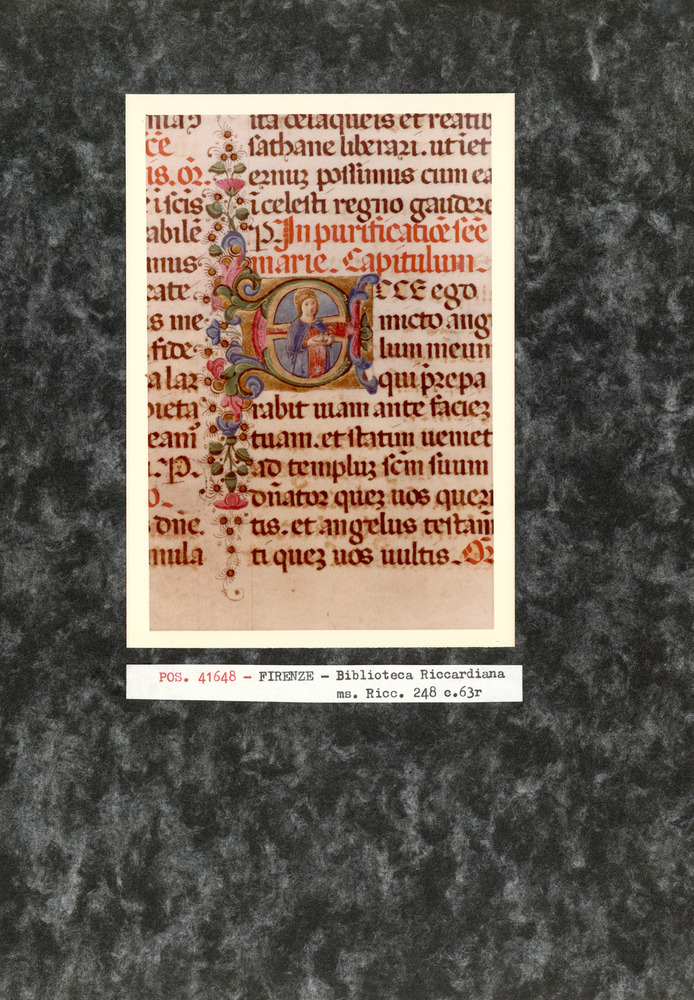 ce
is. or.
i scis
abile
mus
rate
s me
fide
a laz
pieta
eam
P.
dne.
mula
ita delaqueis et reatib
sathane liberari. ut i et
ernuz possimus cum ea
i celesti regno gaudere
P. In purificatiōe scē
marie. Capitulum.
ECCE ego
micto ang
lum meum
qui p̄repa
rabit uiam ante faciez
tuam. et statim ueniet
ad templuz scm̄ suum
dn̄ator quez uos queri
tis. et angelus testam
ti quez uos uultis. Or
POS. 41648 - FIRENZE - Biblioteca Riccardiana
ms. Ricc. 248 c.63r